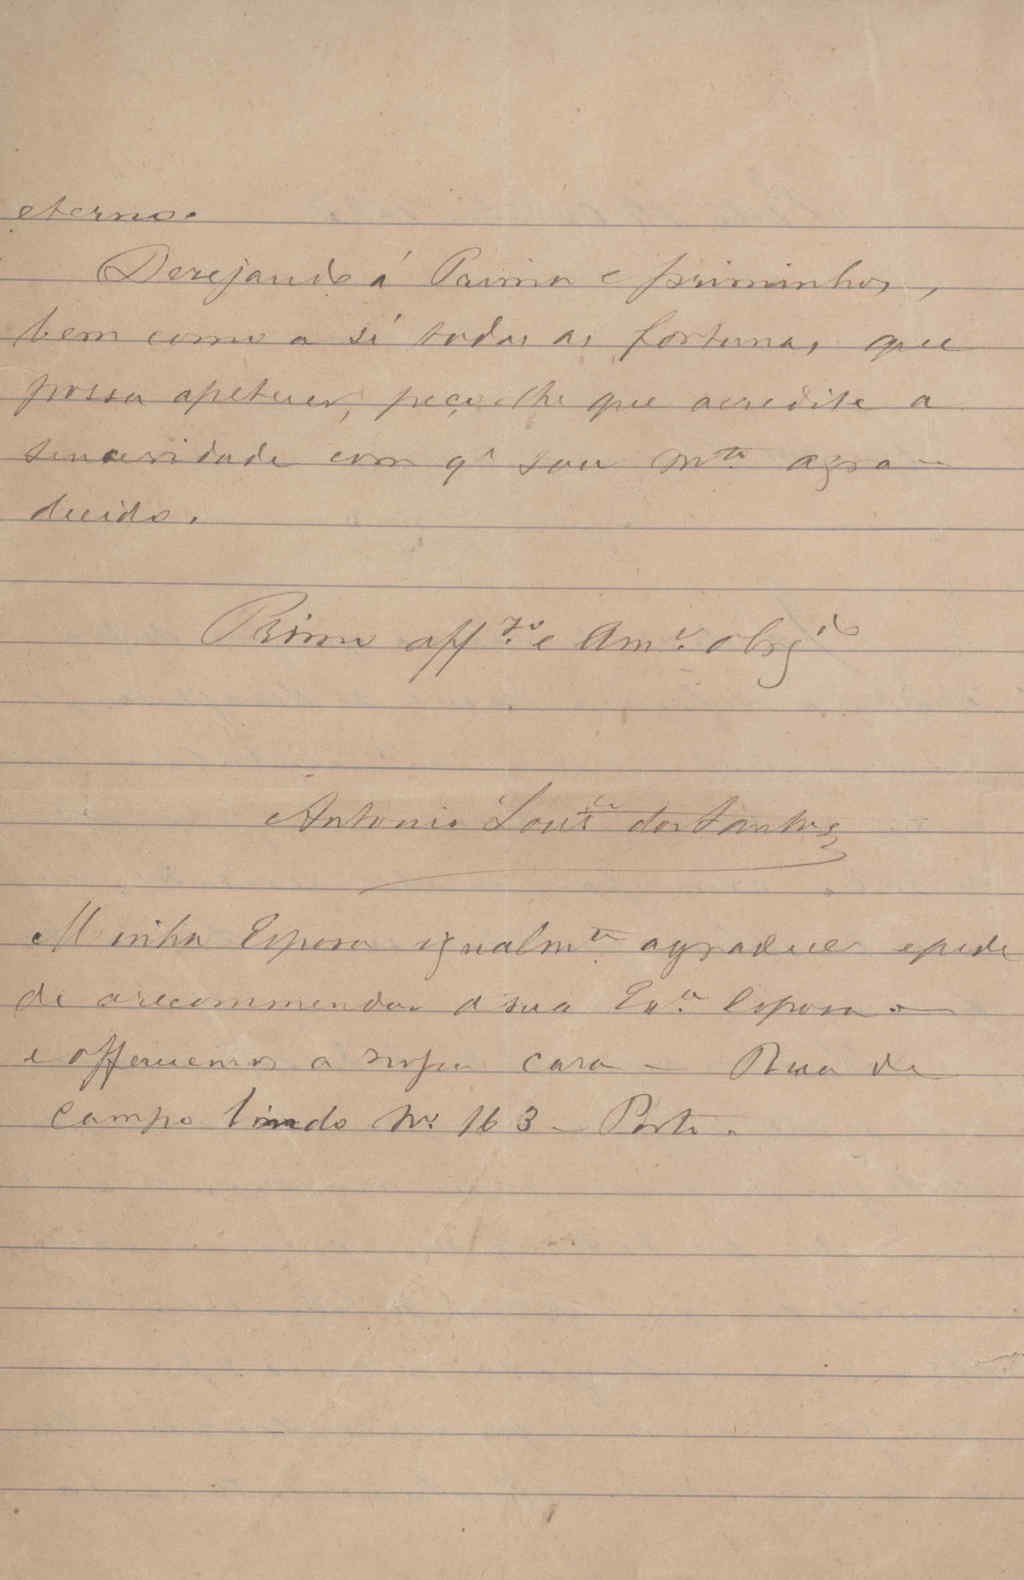 eterno.
Desejando á Prima e priminhos,
bem como a si todas as fortunas que
possa apetecer, peço-lhe que acredite a
sinceridade com q^e sou m^to agra-
decido.
Primo aff^.mo e Am^.o obrg^do
Antonio dos Santos
Minha Esposa igualm^te agradece e pede
de a recommendar a sua Ex^.ma Esposa
e offerecemos a nossa casa - Rua de
Campo Lindo N^o 163 - Porto.